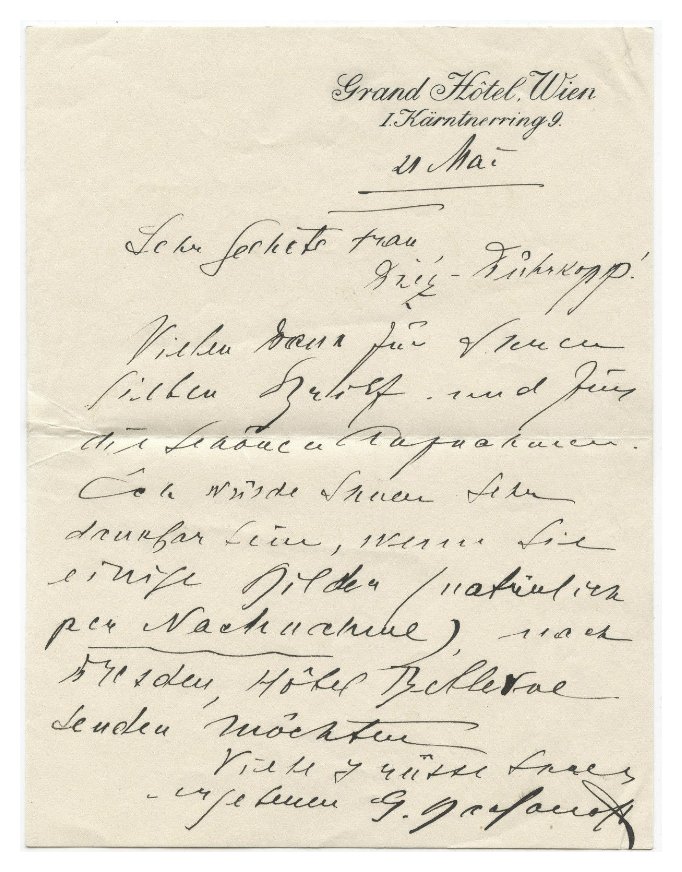 Grand Hôtel, Wien
I. Kärntnerring 9.
21 Mai
Sehr geehrte Frau
Diez-Dührkopp!
Vielen Dank für Ihnen
lieben Brief und für
die schönen Aufnahmen.
Ich würde Ihnen sehr
dankbar sein, wenn Sie
einige Bilder (natürlich
per Nachnahme), nach
Dresden, Hôtel Bellevue
senden möchten
Viele Grüsse Ihnen
ergebenen G.